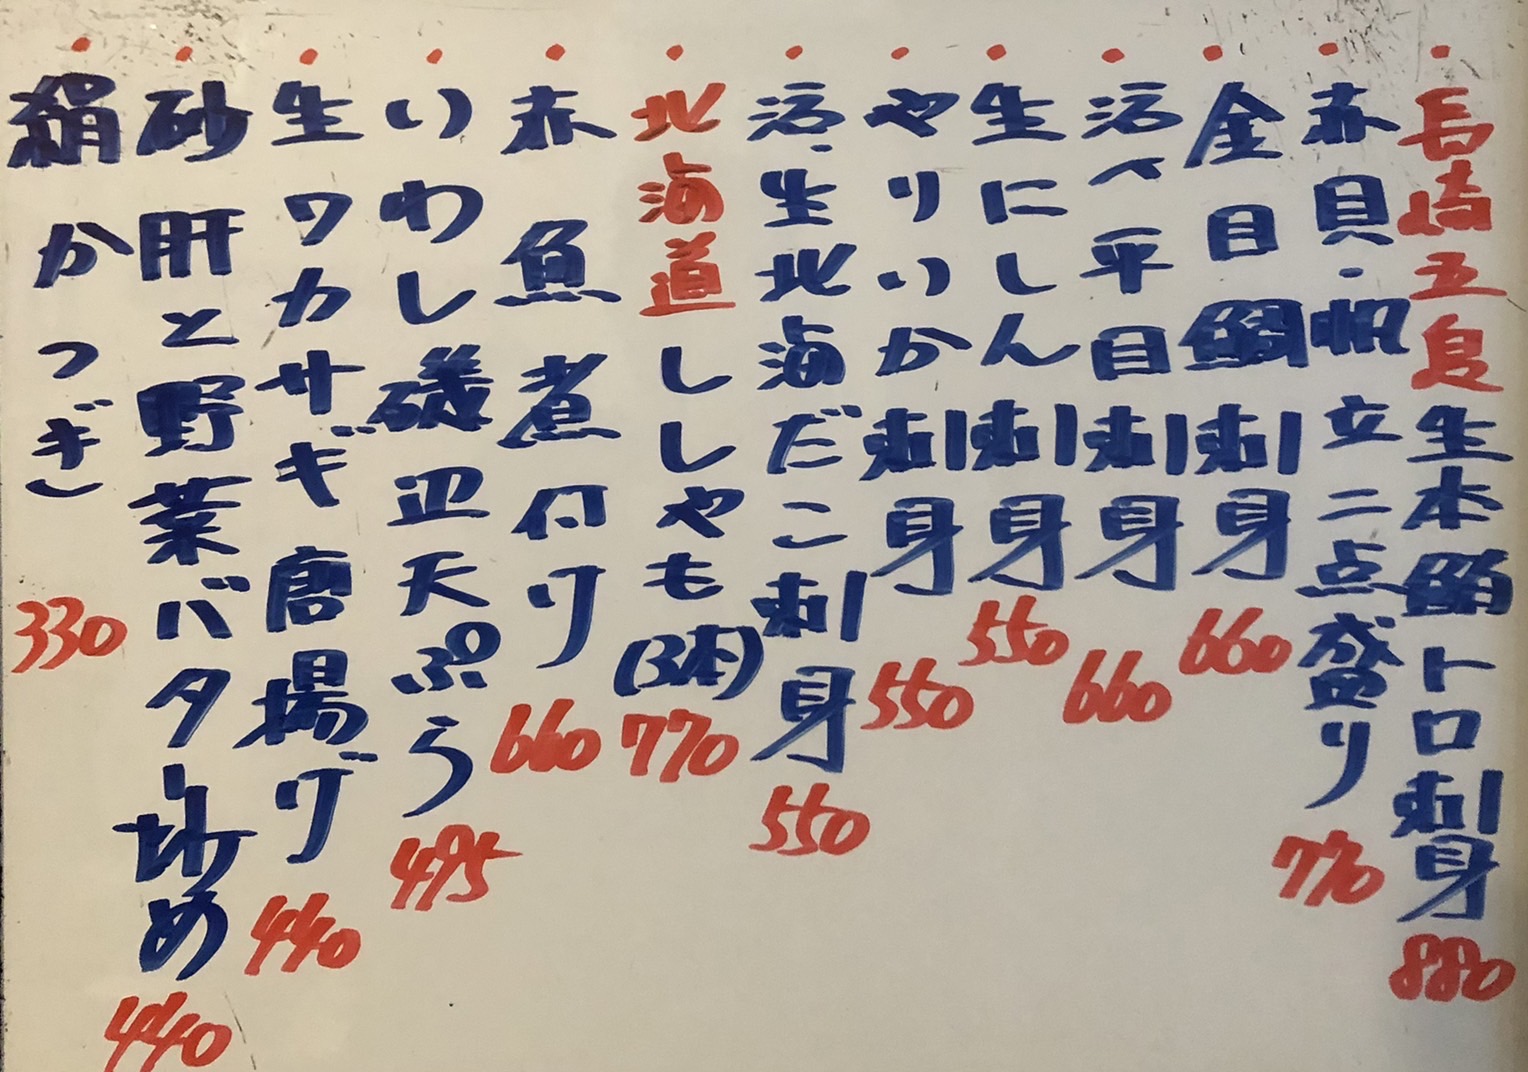 ・長崎五島生本鮪トロ刺身 880
・赤貝・帆立二点盛り 770
・金目鯛刺身 660
・活〆平目刺身 660
・生にしん刺身 550
・やりいか刺身 550
・活・生北海だこ刺身 550
・北海道ししゃも(3本) 770
・赤魚煮付け 660
・いわし磯辺天ぷら 495
・生ワカサギ唐揚げ 440
・砂肝と野菜バター炒め 440
・絹かつぎ 330